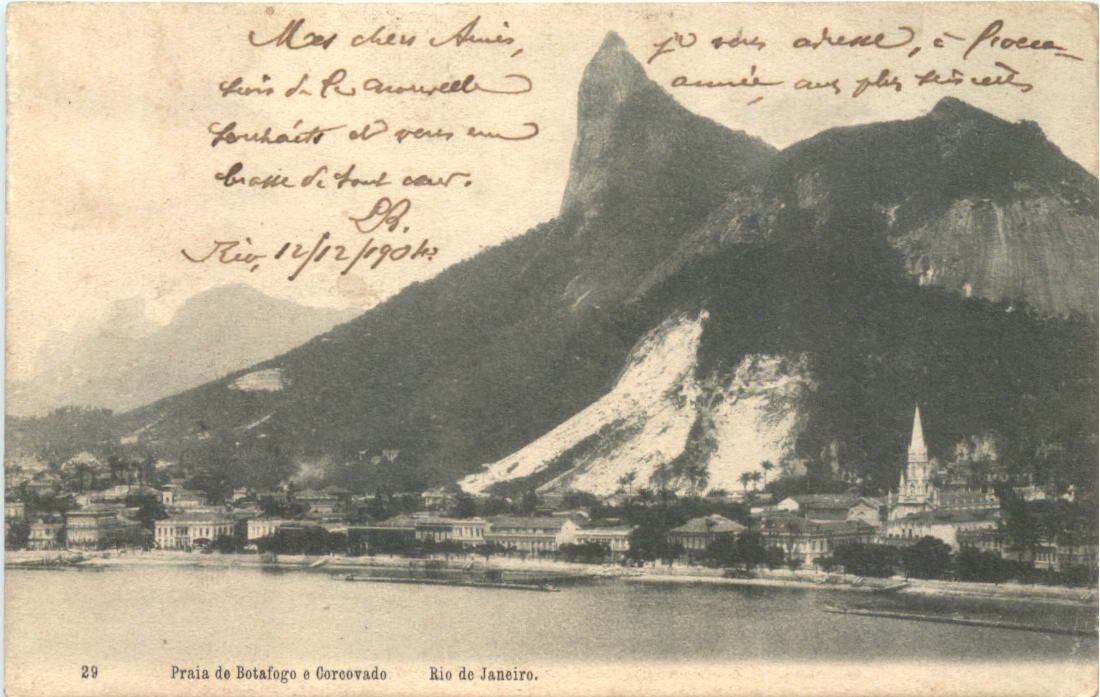 Mes chers Amis, je vous adresse, à l'occa-
sion de la nouvelle année, mes plus sincères
souhaits et vous em
brasse de tout cœur.
Rio, 12/12/1904.
29 Praia de Botafogo e Corcovado Rio de Janeiro.